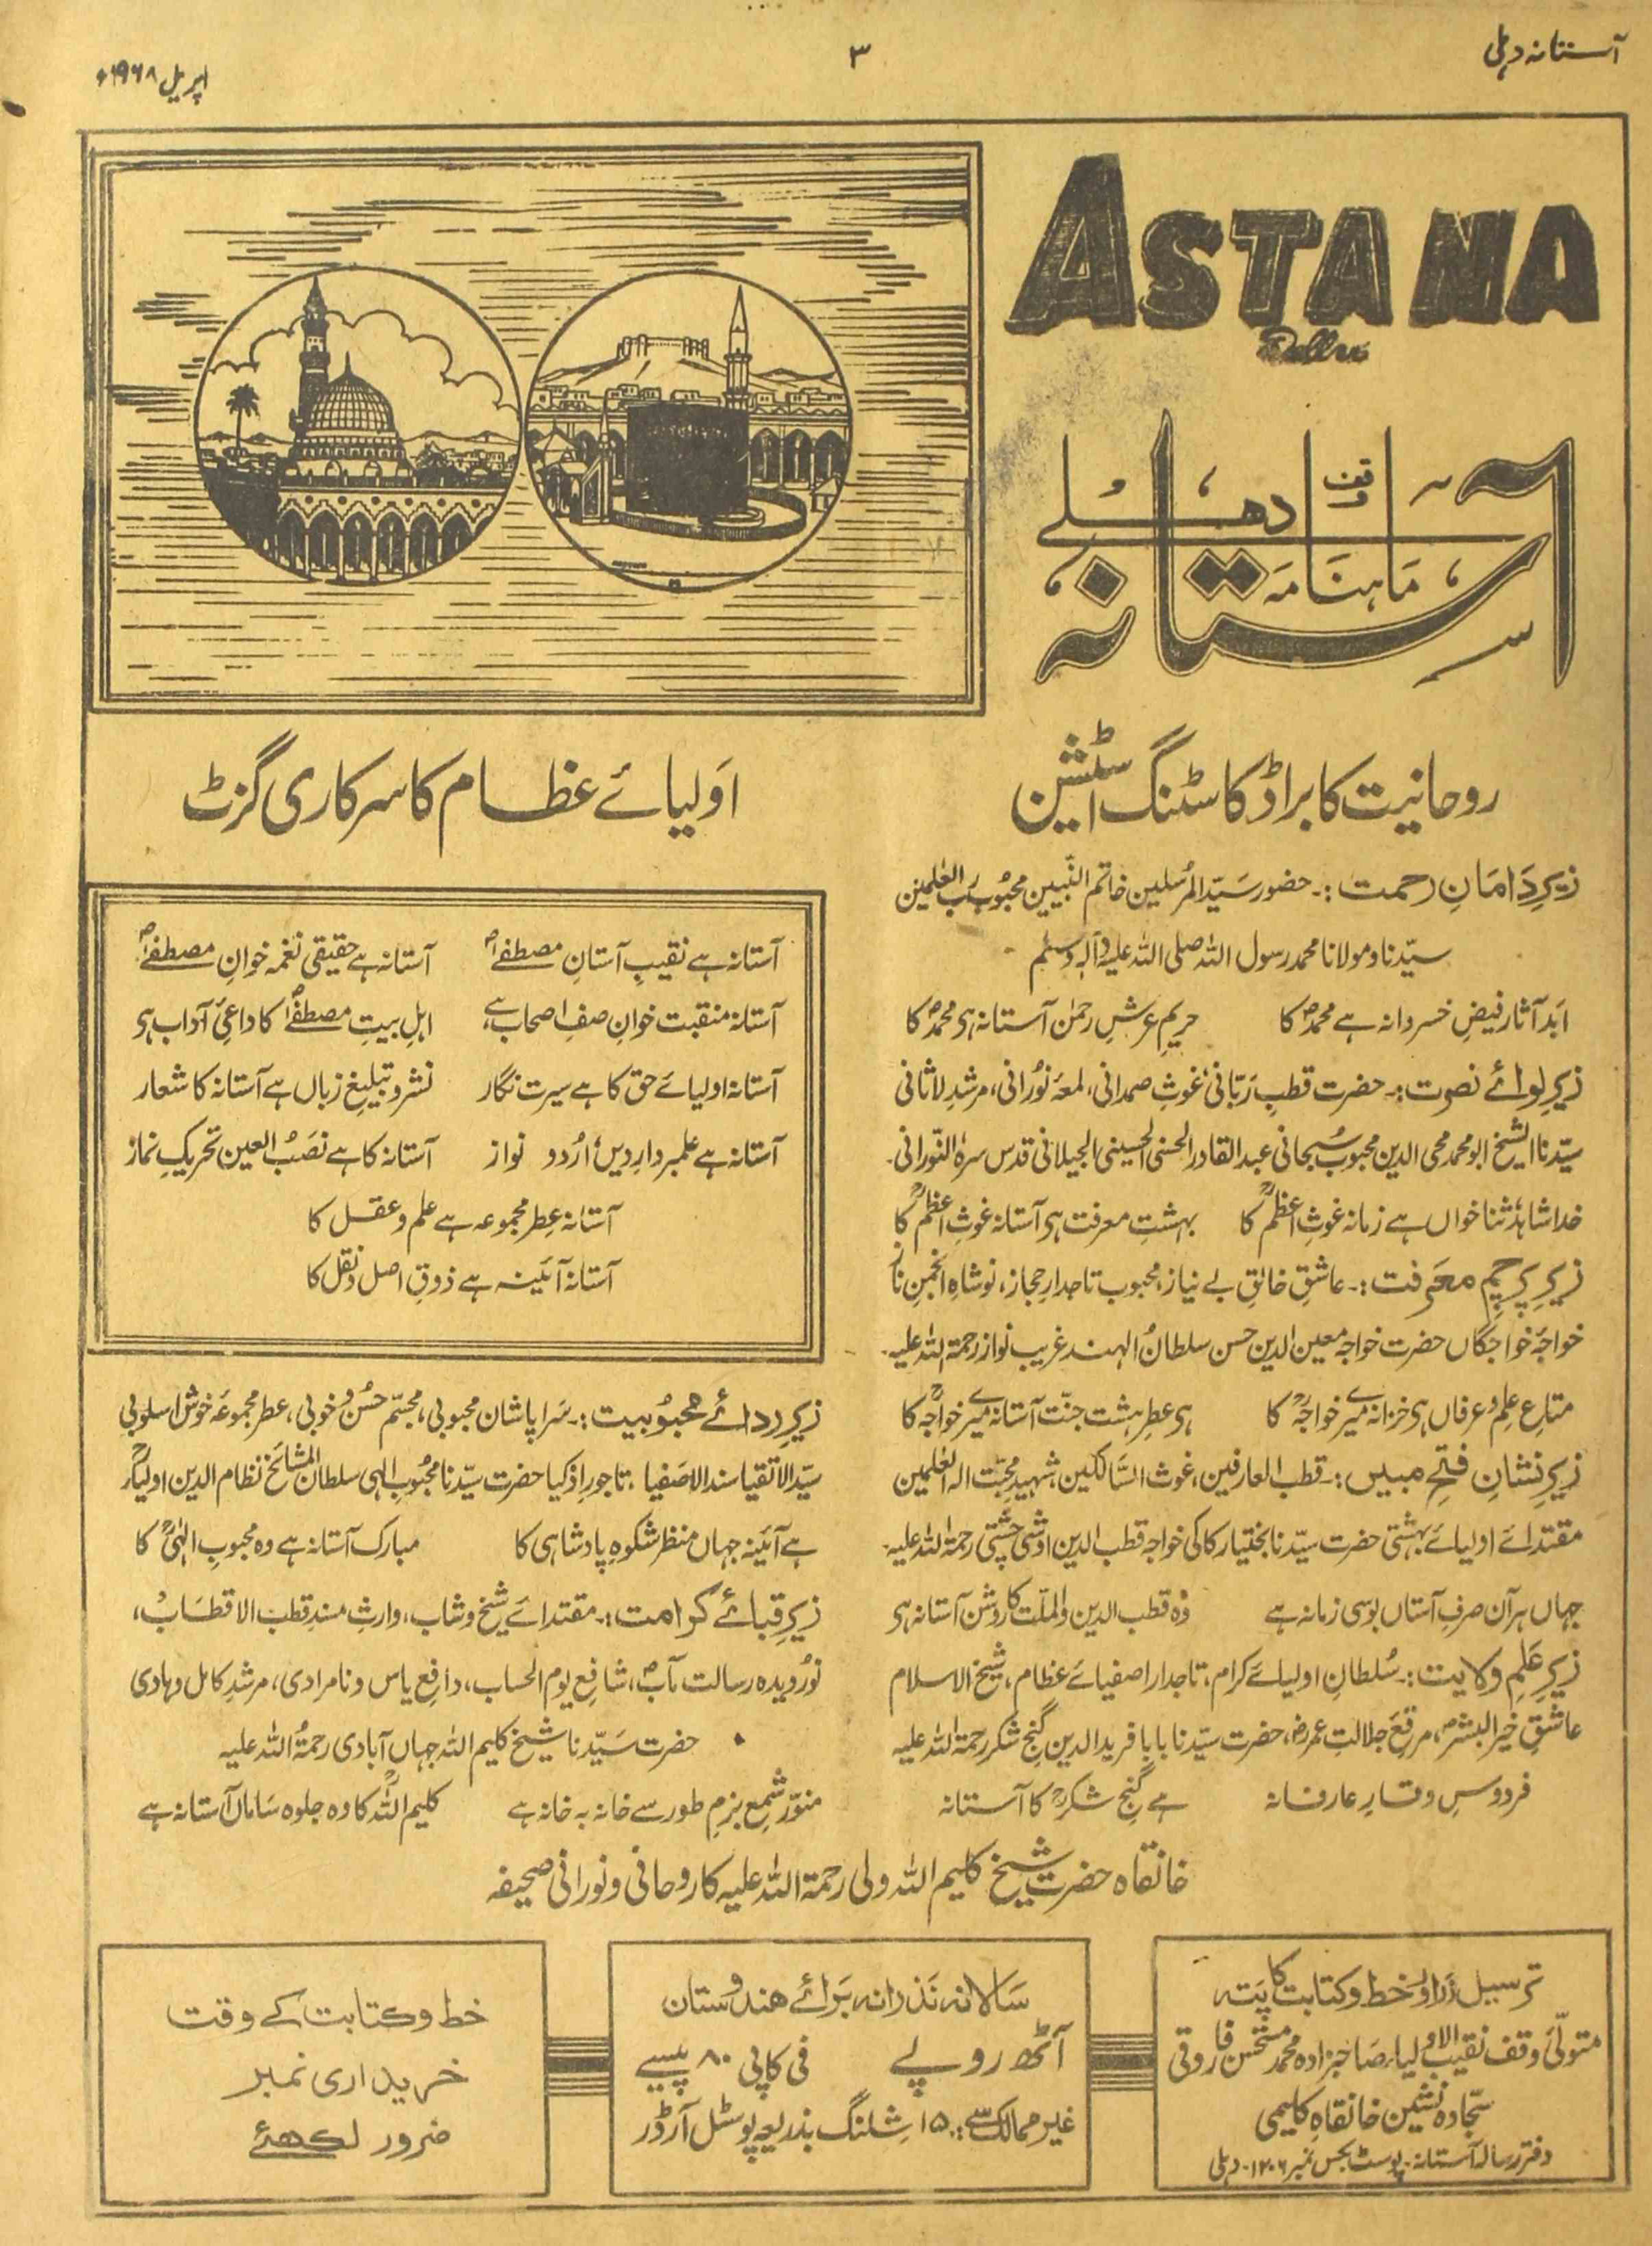 آستانہ دہلی
۳
اپریل ۱۹۶۸ء
ASTANA
Delhi
وقف
دھلے
ماہنامہ
آستانہ
روحانیت کا براڈ کاسٹنگ اسٹیشن
اولیائے عظام کا سرکاری گزٹ
زیرِ دامانِ رحمت :۔ حضور سیّد المرسلین خاتم النّبیین محبوب رب العٰلمین
سیّدنا و مولانا محمد رسول اللہ صلی اللہ علیہ وآلہٖ وسلم
ابد آثار فیضِ خسروانہ ہے محمدؐ کا حریمِ عرشِ رحمٰن آستانہ ہی محمدؐ کا
زیرِ لوائے نصرت :۔ حضرت قطبِ ربّانی، غوثِ صمدانی، لمعۂ نُورانی، مرشدِ لاثانی
سیّدنا الشیخ ابو محمد محی الدین محبوب سُبحانی عبدالقادر الحسنی الحسینی الجیلانی قدس سرہٗ النّورانی۔
خدا شاہد ثنا خواں ہے زمانہ غوثِ اعظمؒ کا بہشتِ معرفت ہی آستانہ غوثِ اعظمؒ کا
زیرِ پرچمِ معرفت :۔ عاشقِ خالقِ بے نیاز، محبوب تاجدارِ حجاز، نوشاہِ انجمنِ ناز
خواجۂ خواجگاں حضرت خواجہ معین الدین حسن سلطانُ الہند غریب نواز رحمۃ اللہ علیہ۔
متاعِ علم و عرفاں ہی خزانہ میرے خواجہؒ کا ہی عطرِ ہشت جنّت آستانہ میرے خواجہؒ کا
زیرِ نشانِ فتحِ مبیں :۔ قطب العارفین، غوث السّالکین، شہیدِ محبّت الہ العٰلمین
مقتدائے اولیائے بہشتی حضرت سیّدنا بختیار کاکی خواجہ قطب الدین اوشی چشتی رحمۃ اللہ علیہ۔
جہاں ہر آن صرفِ آستاں بوسی زمانہ ہے وہ قطب الدین والملّت کا روشن آستانہ ہی
زیرِ عَلمِ ولایت :۔ سُلطانِ اولیائے کرام، تاجدار اصفیائے عظام، شیخ الاسلام
عاشقِ خیر البشرؐ، مرقعِ جلالتِ عمرؓ، حضرت سیّدنا بابا فرید الدین گنج شکر رحمۃ اللہ علیہ
فردوسِ وقارِ عارفانہ ہے گنجِ شکرؒ کا آستانہ
آستانہ ہے نقیبِ آستانِ مصطفےٰؐ آستانہ ہے حقیقی نغمہ خوانِ مصطفےٰؐ
آستانہ منقبت خوانِ صفِ اصحاب ہے اہلِ بیتِ مصطفےٰؐ کا داعیٔ آداب ہی
آستانہ اولیائے حق کا ہے سیرت نگار نشر و تبلیغِ زباں ہے آستانہ کا شعار
آستانہ ہے علمبردارِ دیں، اُردو نواز آستانہ کا ہے نصبُ العین تحریکِ نماز
آستانہ عطرِ مجموعہ ہے علم و عقل کا
آستانہ آئینہ ہے ذوقِ اصل و نقل کا
زیرِ ردائے محبوبیت :۔ سَراپا شان محبوبی، مجسّم حُسن و خوبی، عطر مجموعۂ خوش اسلوبی
سیّد الاتقیا سند الاصفیا، تاجورِ اذکیا حضرت سیّدنا محبُوبِ الٰہی سلطان المشائخ نظام الدین اولیاؒ
ہے آئینہ جہاں منظر شکوہِ پادشاہی کا مبارک آستانہ ہے وہ محبوبِ الٰہیؒ کا
زیرِ قبائے کرامت :۔ مقتدائے شیخ و شاب، وارثِ مسندِ قطب الاقطاب،
نُورِ دیدہ رسالت مآبؐ، شافعِ یوم الحساب، دافعِ یاس و نامرادی، مرشدِ کامل و ہادی
حضرت سَیّدنا شیخ کلیم اللہ جہاں آبادی رحمۃُ اللہ علیہ
منوّر شمعِ بزمِ طور سے خانہ بہ خانہ ہے کلیم اللہؒ کا وہ جلوہ سَاماں آستانہ ہے
خانقاہ حضرت شیخ کلیم اللہ ولی رحمۃ اللہ علیہ کا روحانی و نورانی صحیفہ
ترسیل زر اور خط و کتابت کا پتہ
متولّیٔ وقف نقیب الاولیاء صاحبزادہ محمد مستحسن فاروقی
سجّادہ نشین خانقاہ کلیمی
دفتر رسالہ آستانہ۔ پوسٹ بکس نمبر ۱۲۰۶۔ دہلی
سَالانہ نذرانہ برائے ھندوستان
آٹھ روپے فی کاپی ۸۰ پیسے
غیر ممالک سے :۔ ۱۵ شِلنگ بذریعہ پوسٹل آرڈر
خط و کتابت کے وقت
خریداری نمبر
ضرور لکھئے